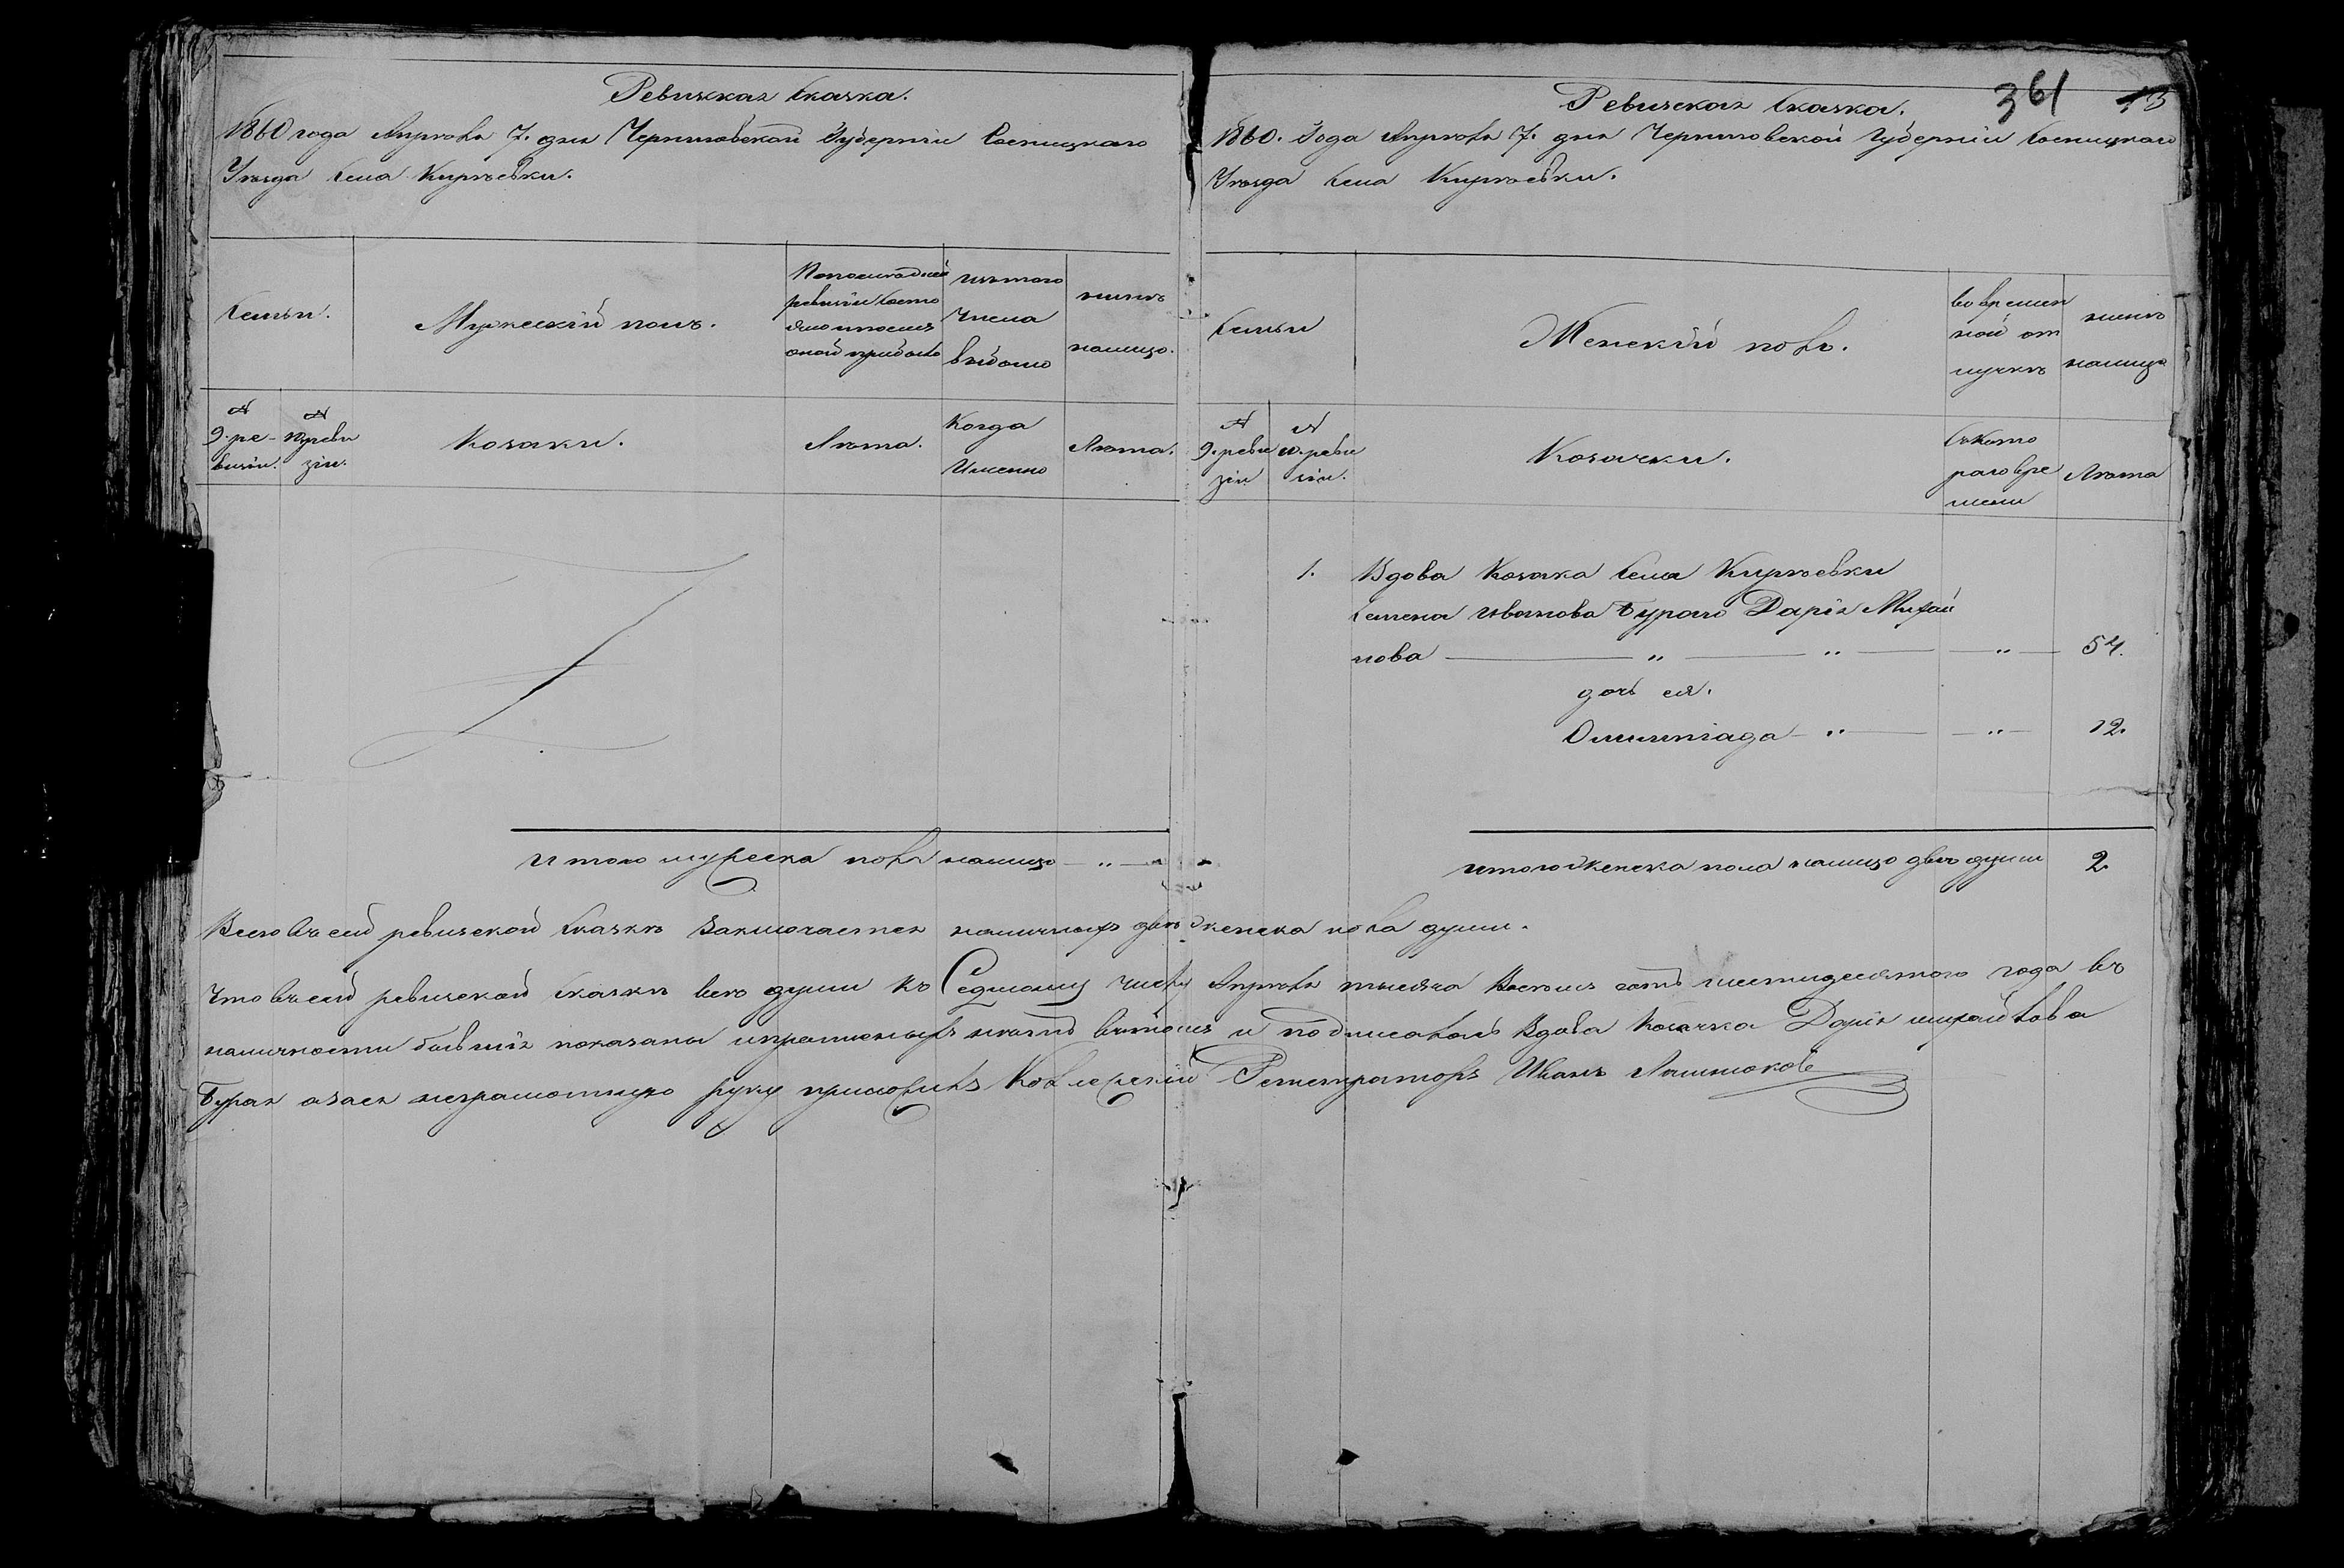 Ревизская Сказка.
1860 года Апреля 7. дня Черниговской Губерніи Сосницкаго
Уезда Села Киреевки.
Семьи.
Мужескій полъ.
По последней
ревизіи состо
яло и после
оной прибыло
изътого
числа
выбыло
ныне
налицо.
№
9. ре-
визіи.
№
10 реви
зіи.
Козаки.
Лета.
Когда
Именно
Лета.
Итого мужеска пола налицо — „ —
361
13
Ревизская Сказка.
1860. Года Апреля 7. дня Черниговской Губерніи Сосницкаго
Уезда Села Киреевки.
Семьи
Женскій полъ.
во времен
ной от
лучке
ныне
налицо
№
9. реви
зіи
№
10. реви
зіи.
Козачки.
Съ кото
раго вре
мени
Лета
1. Вдова Козака Села Киреевки
Семена Иванова Бурого Дарія Михай
лова — „ — „ — „ — 54.
дочь ея.
Олимпіада — „ — „ — 12.
итого женска пола налицо две души 2
Всего въ сей ревизской сказке заключается наличныхъ две женска пола души.
Что въ сей ревизской сказке все души къ Седмому числу Апреля тысяча восемь сотъ шестидесятого года въ
наличности бывшія показаны и прописныхъ нетъ въ томъ и подписалась Вдова Козачка Дарія Михайлова
Бурая а за ея неграмотную руку приложилъ Коллежскій Регистраторъ Иванъ